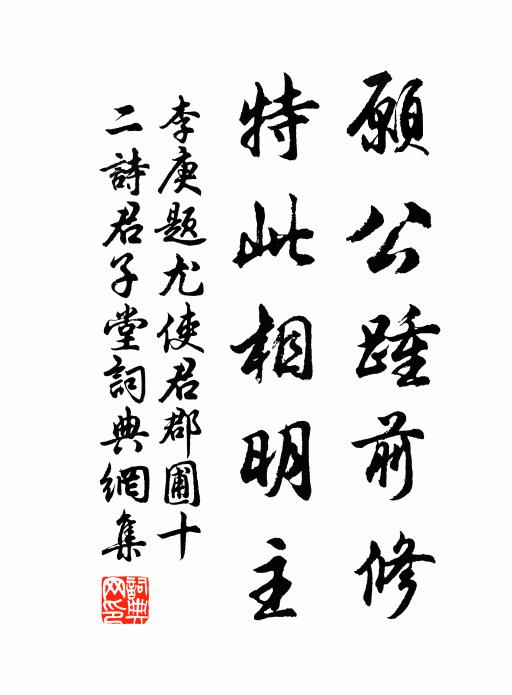 願公踵前修
特此相明主
李庚题尤使君郡圃十
二詩君子堂詞典網集
詞典网印